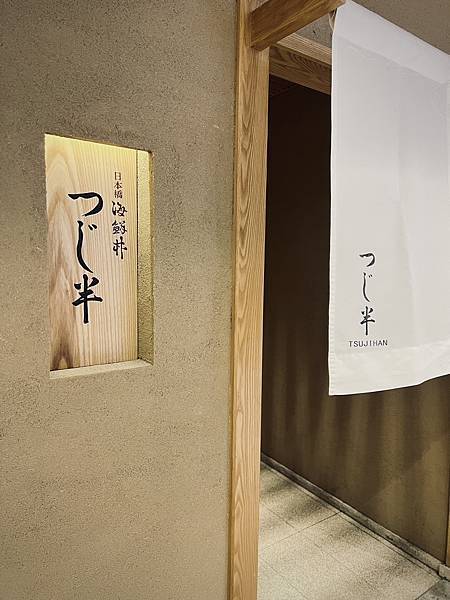 日本橋
海鮮丼
つじ半
つじ半
TSUJIHAN